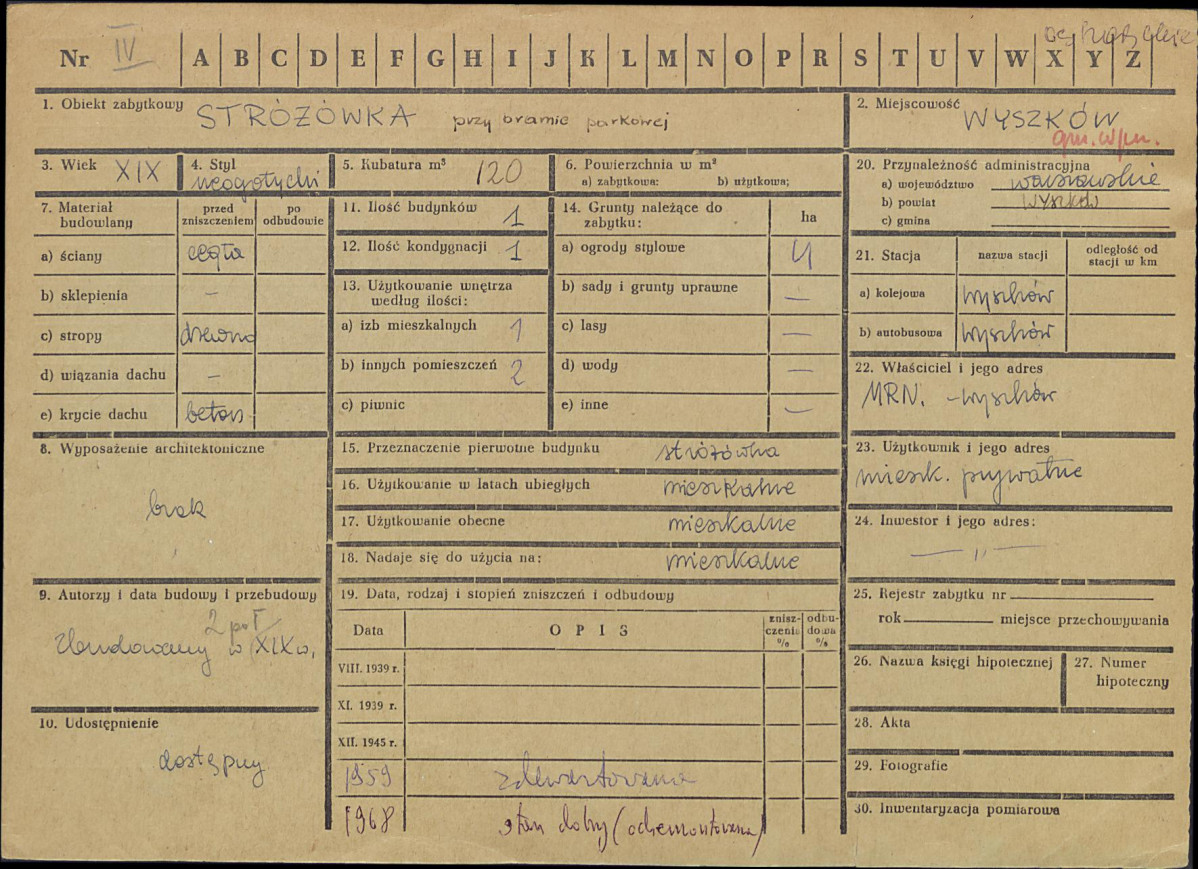 Nr IV A B C D E F G H I J K L M N O P R S T U V W X Y Z
1. Obiekt zabytkowy STRÓŻÓWKA przy bramie parkowej
2. Miejscowość WYSZKÓW
gm. w/m.
3. Wiek XIX
4. Styl neogotycki
5. Kubatura m³ 120
6. Powierzchnia w m²
a) zabytkowa: b) użytkowa;
7. Materiał budowlany
przed zniszczeniem
po odbudowie
a) ściany cegła
b) sklepienia –
c) stropy drewno
d) wiązania dachu –
e) krycie dachu beton
8. Wyposażenie architektoniczne
brak
9. Autorzy i data budowy i przebudowy
2 poł
Zbudowany w XIX w.
10. Udostępnienie
dostępny
11. Ilość budynków 1
12. Ilość kondygnacji 1
13. Użytkowanie wnętrza
według ilości:
a) izb mieszkalnych 1
b) innych pomieszczeń 2
c) piwnic
14. Grunty należące do
zabytku:
ha
a) ogrody stylowe 4
b) sady i grunty uprawne —
c) lasy —
d) wody —
e) inne —
15. Przeznaczenie pierwotne budynku stróżówka
16. Użytkowanie w latach ubiegłych mieszkalne
17. Użytkowanie obecne mieszkalne
18. Nadaje się do użycia na: mieszkalne
19. Data, rodzaj i stopień zniszczeń i odbudowy
Data OPIS znisz-czenia % odbu-dowa %
VIII. 1939 r.
XI. 1939 r.
XII. 1945 r.
1959 zdewastowana
1968 stan dobry (odremontowana)
20. Przynależność administracyjna
a) województwo warszawskie
b) powiat Wyszków
c) gmina
21. Stacja
nazwa stacji
odległość od
stacji w km
a) kolejowa Wyszków
b) autobusowa Wyszków
22. Właściciel i jego adres
MRN. – Wyszków
23. Użytkownik i jego adres
mieszk. prywatne
24. Inwestor i jego adres:
— „ —
25. Rejestr zabytku nr
rok miejsce przechowywania
26. Nazwa księgi hipotecznej
27. Numer
hipoteczny
28. Akta
29. Fotografie
30. Inwentaryzacja pomiarowa